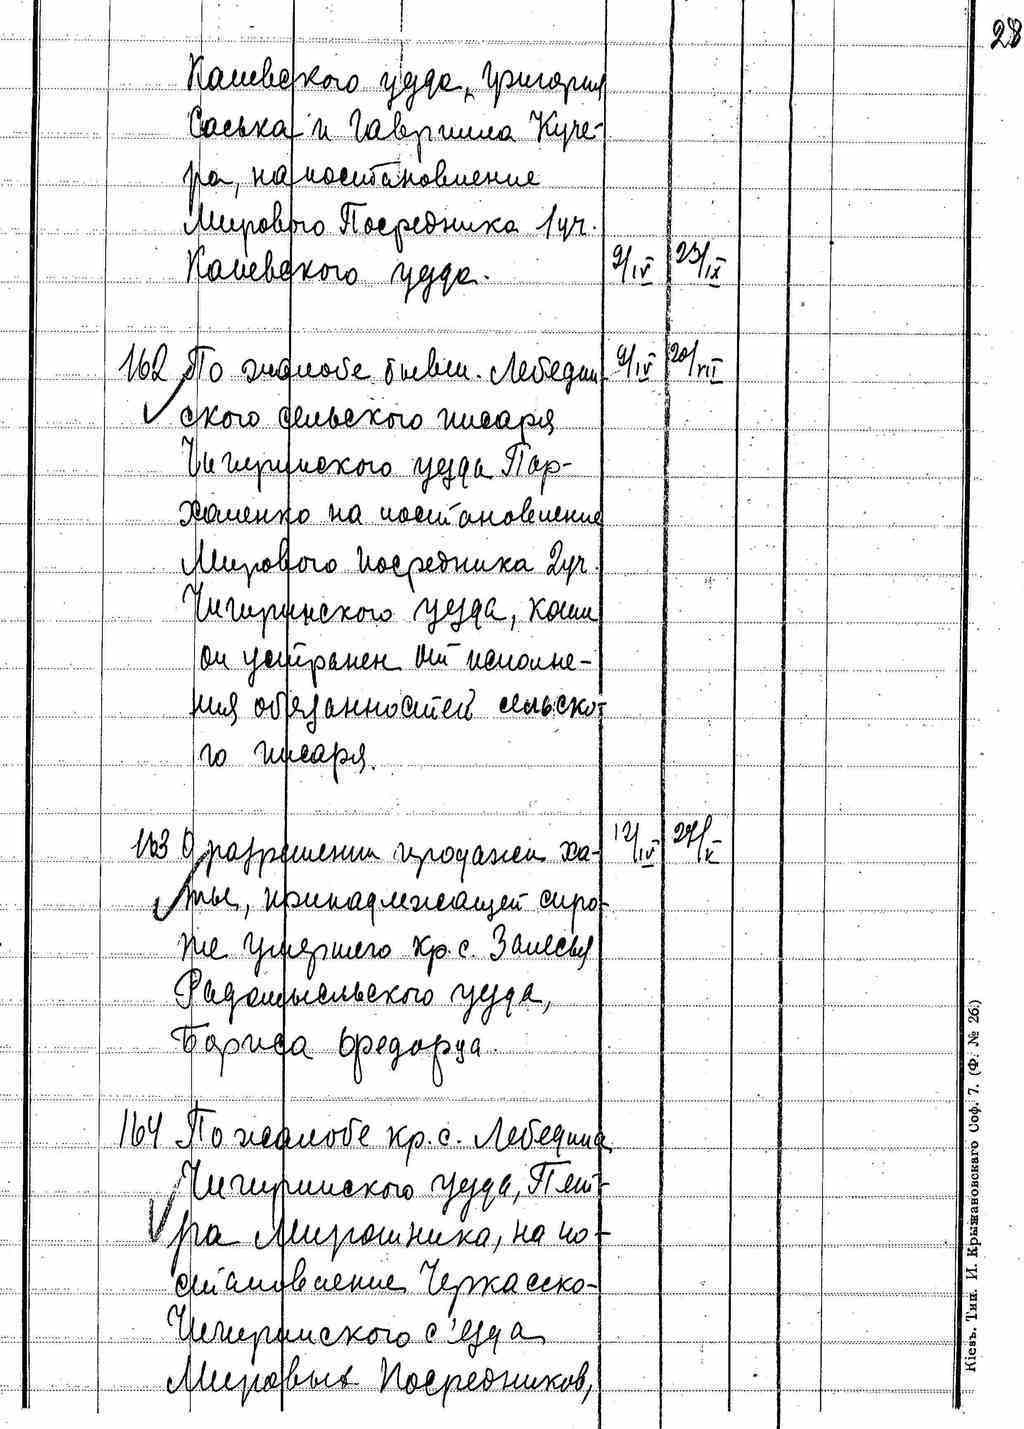 28
Каневского уезда, Григория
Саська и Гавриила Куче-
ра, на постановление
Мирового Посредника 1 уч.
Каневского уезда. 9/IV 23/IX
162 По жалобе бывш. Лебедин-
ского сельского писаря
Чигиринского уезда Пар-
хоменко на постановление
Мирового Посредника 2 уч.
Чигиринского уезда, коим
он устранен от исполне-
ния обязанностей сельско-
го писаря. 9/IV 20/VII
163 О разрешении продажи ха-
ты, принадлежащей сиро-
те умершего кр. с. Залесья
Радомысльского уезда,
Бориса 12/IV 27/V
164 По жалобе кр. с. Лебедина
Чигиринского уезда, Пет-
ра Мирошника, на по-
становление Черкасско-
Чигиринского с'езда
Мировых Посредников,
Кіевъ. Тип. И. Крыжановскаго Соф. 7. (Ф. № 26.)